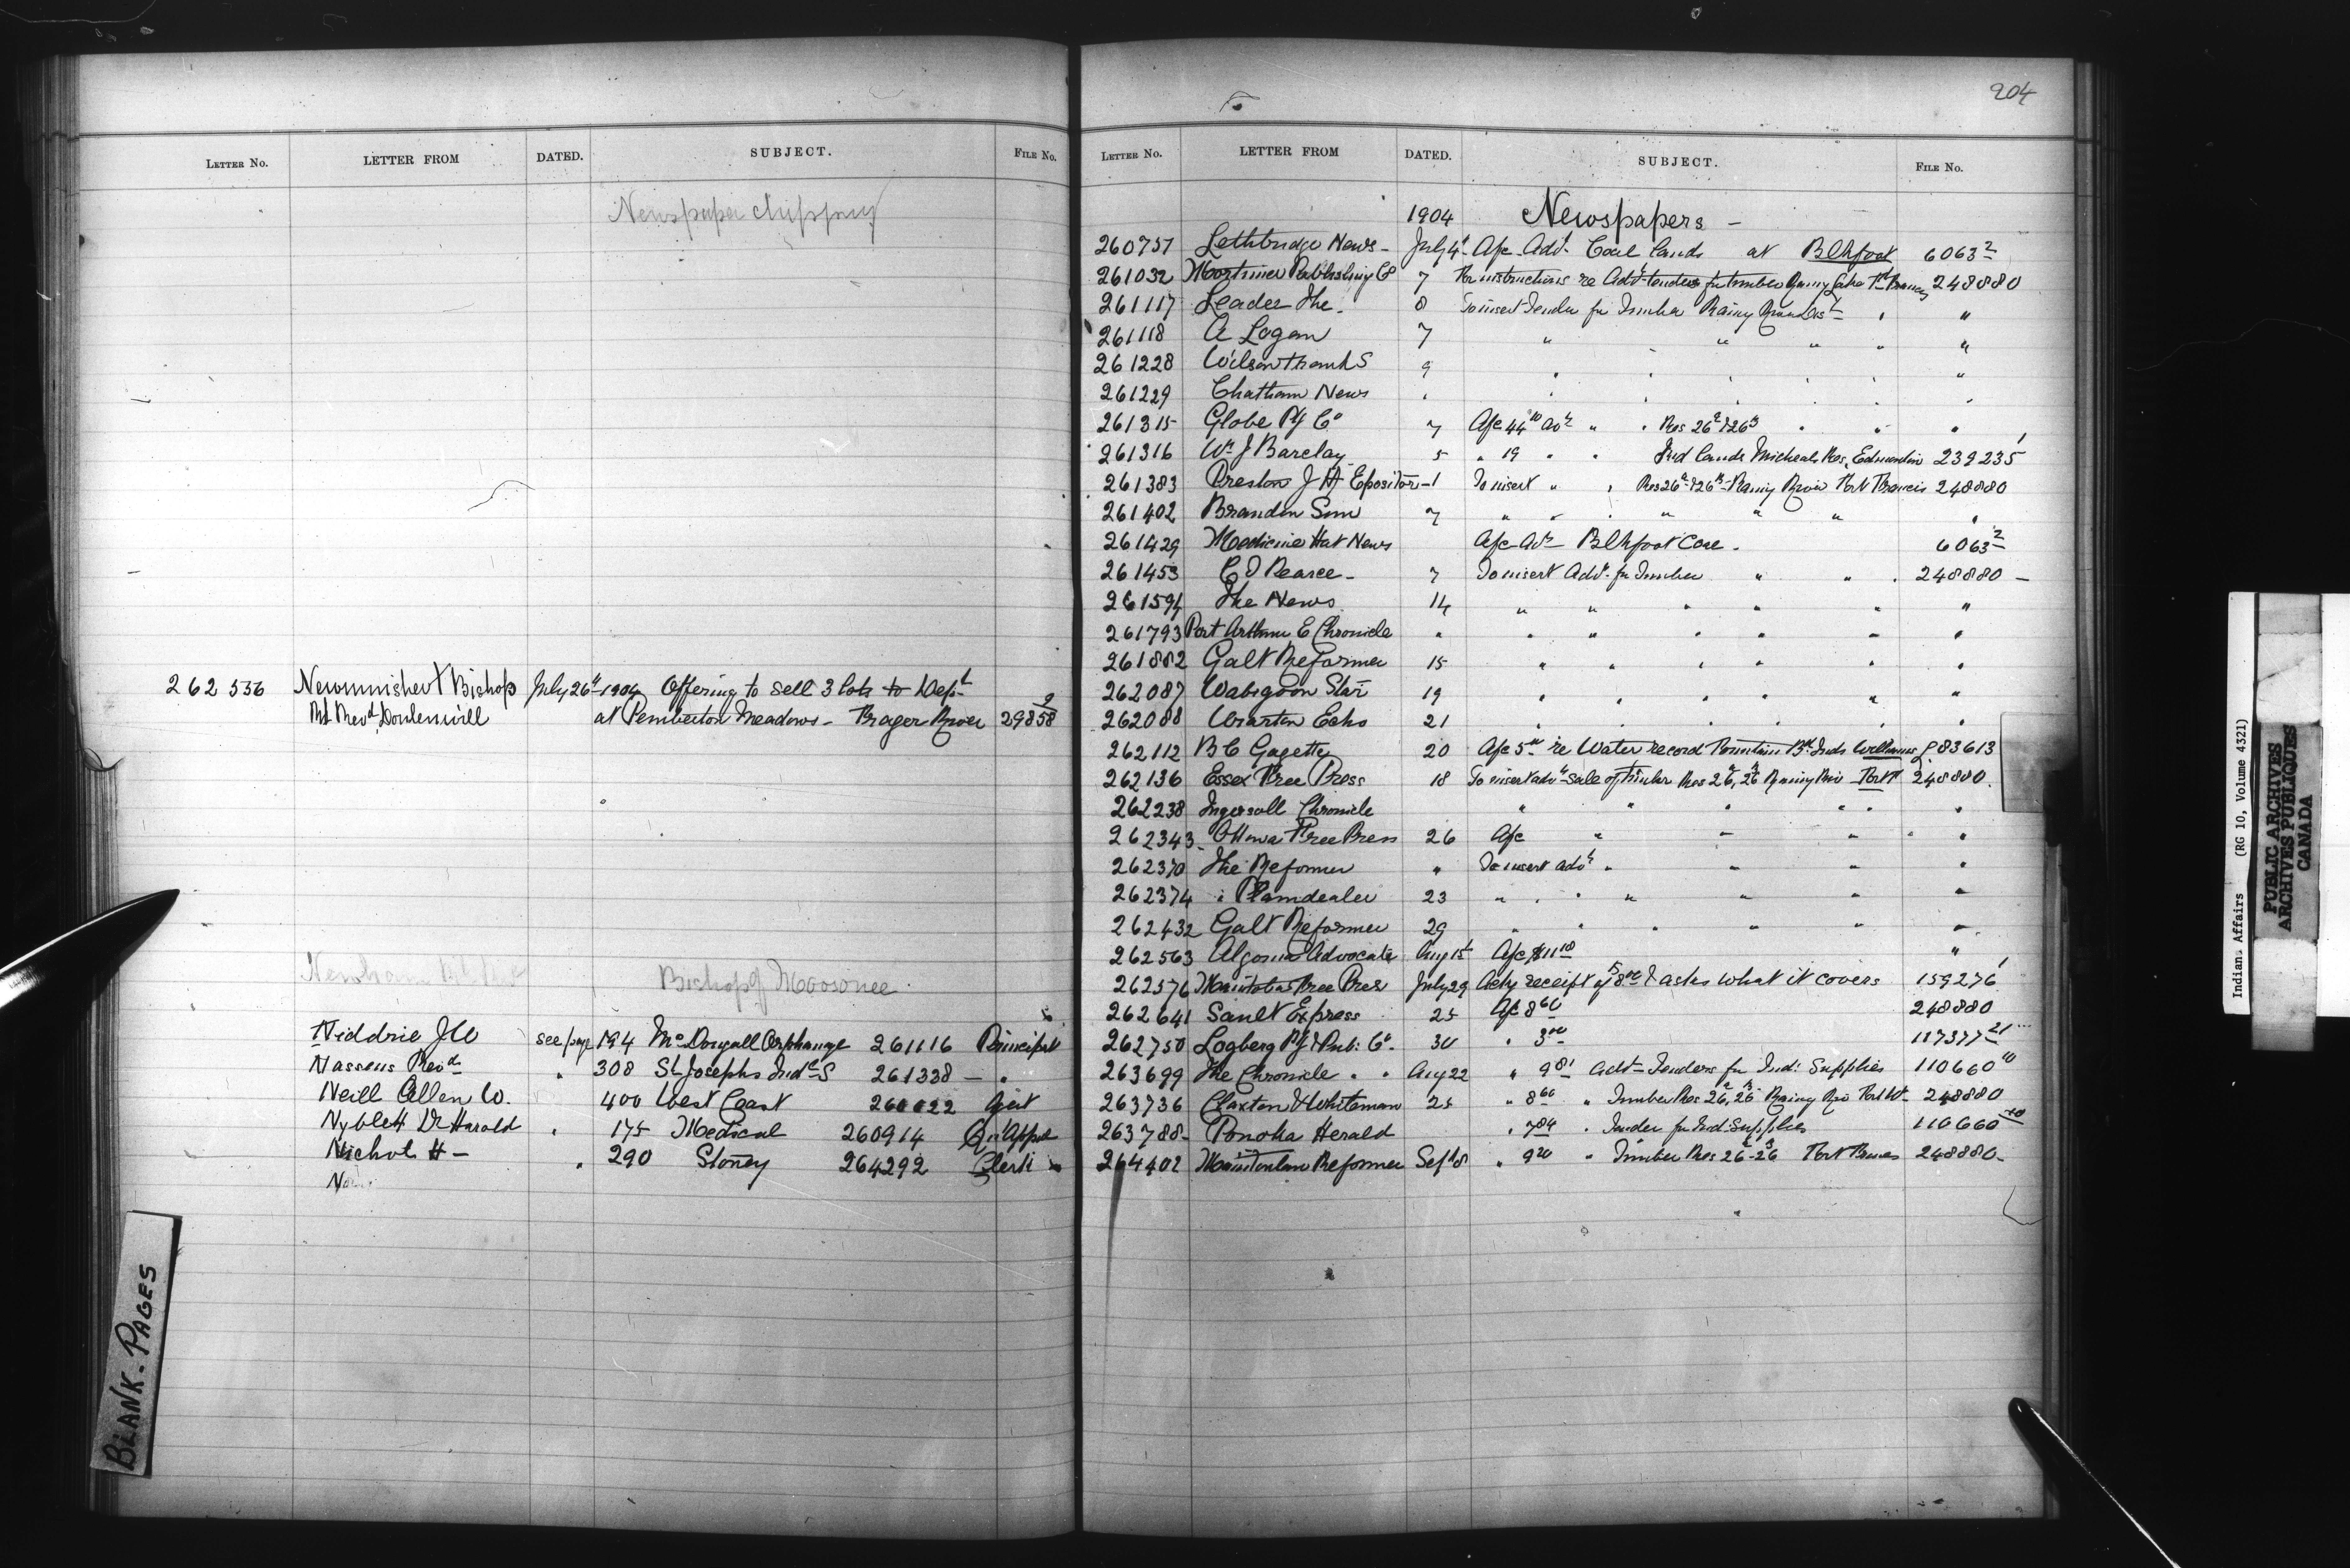 LETTER NO. LETTER FROM DATED. SUBJECT. FILE No.
Newspaper clippings
262536 Newminister Bishop July 26th 1904 Offering to sell 3 lots to Dept
Rt Revd Dontenwill at Pemberton Meadows - Frazer River 29858-9
Newnham Rt Rev Bishop of Moosonee
Niddrie J W see page 194 McDougall Orphanage 261116 Principal
Nassens Revd " 308 St Josephs Indl S 261338 - "
Neill Allen W. 400 West Coast 260022 Agt
Nyblett Dr Harold " 175 Medical 260914 Qu'Appel
Nichol H - " 290 Stoney 264292 Clerk
BLANK. PAGES
204
LETTER NO. LETTER FROM DATED. SUBJECT. FILE NO.
1904 Newspapers -
260757 Lethbridge News - July 4t A/c Advt Coal lands at Blkfoot 6063-2
261032 Mortimer Publishing Co 7 For instructions re Advt tenders for timber Rainy Lake Ft Frances 248880
261117 Leader The. 8 To insert Tender for Timber Rainy River Dist " "
261118 A Logan 7 " " " " "
261228 Wilson Frank S 9 " " " " " "
261229 Chatham News " " " " " " "
261315 Globe Ptg Co 7 A/c 44.10 advt " " Res 26a & 26b " " "
261316 Wm J Barclay 5 " 19 " " Ind lands Micheals Res, Edmonton 239235-1
261383 Preston J H Epositor - 1 To insert " " Res 26a & 26b - Rainy River Fort Francis 248880
261402 Brandon Sun 7 " " " " " " "
261429 Medicine Hat News A/c Advt Blkfoot Coal. 6063-2
261453 C D Pearce - 7 To insert Advt. for Timber " " . 248880 -
261594 The News 14 " " " " " "
261793 Port Arthur E Chronicle " " " " " " "
261882 Galt Reformer 15 " " " " " "
262087 Wabigoon Star 19 " " " " " "
262088 Wiarton Echo 21 " " " " " "
262112 B C Gazette 20 A/c 5.00 re Water record Fountain Bd. Inds Williams L 83613
262136 Essex Free Press 18 To insert advt sale of timber Res 26a, 26b Rainy Riv Fort F 248880.
262238 Ingersoll Chronicle " " " " " "
262343 Ottawa Free Press 26 A/c " " " " "
262370 The Reformer " To insert advt " " " "
262374 " Plaindealer 23 " " " " " " "
262432 Galt Reformer 29 " " " " " "
262563 Algoma Advocate Aug 1st A/c $11.10 "
262576 Manitoba Free Press July 29 Ackg receipt of $8.00 & asks what it covers 159276-1
262641 Sault Express 25 A/c 8.60 248880
262750 Logberg Ptg & Pub: Co. 30 " 3.00 117377-21
263699 The Chronicle " " Aug 22 " 9.81 Advt Tenders for Ind: Supplies 110660-10
263736 Claxton & Whiteman 25 " 8.60 " Timber Res 26a, 26b Rainy Riv Fort Wm 248880
263788 Ponoka Herald " 7.84 " Tender for Ind: Supplies 110660-10
264402 Manitoulin Reformer Sept 8 " 9.20 " Timber Res 26a - 26b Fort Frances 248880 -
Indian. Affairs (RG 10, Volume 4321)
PUBLIC ARCHIVES
ARCHIVES PUBLIQUES
CANADA